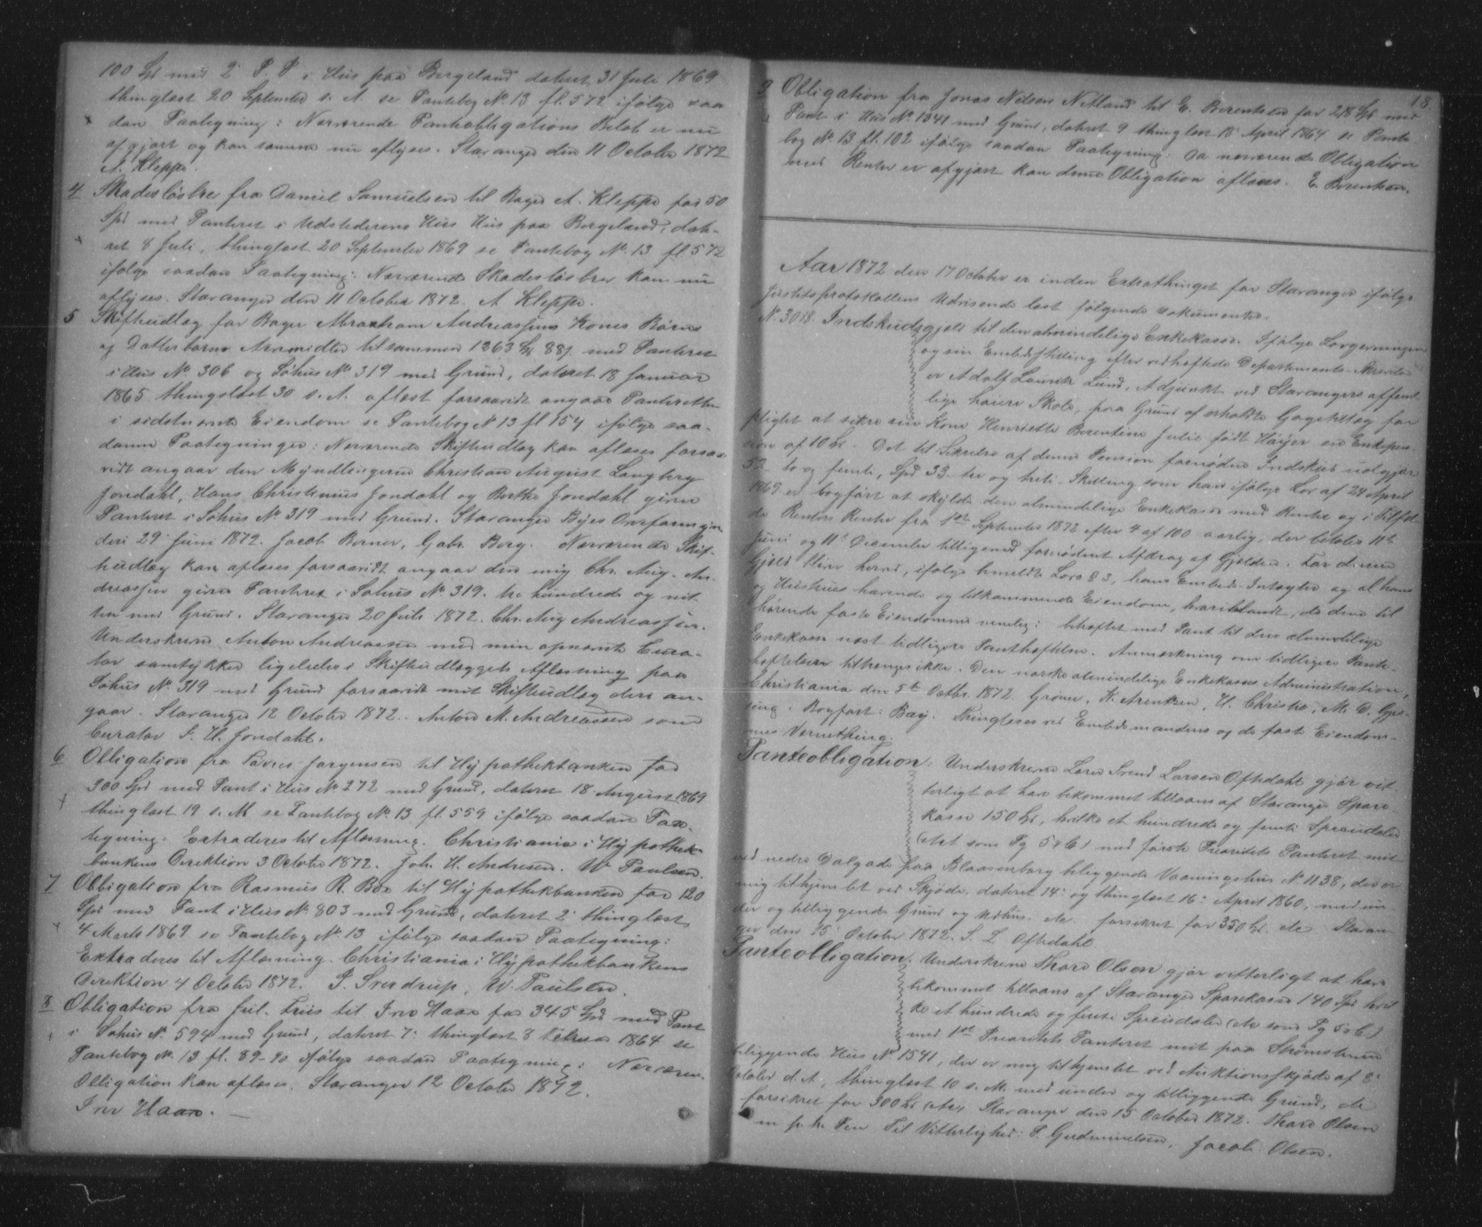 100 Spd med 2 P. P. i Hus paa Bergeland dateret 31 Juli 1869
thinglæst 20 September s. A. se Pantebog No 13 fl. 572 ifølge saa
dan Paategning: Nærværende Pantobligations Beløb er nu
afgjort og kan samme nu aflyses. Stavanger den 11 October 1872
A. Kleppe.
4 Skadesløsbrev fra Daniel Samuelsen til Bager A. Kleppe for 50
Spd med Panteret i Udstederens Hus paa Bergeland, date-
ret 8 Juli, thinglæst 20 September 1869 se Pantebog No 13 fl 572
ifølge saadan Paategning: Nærværende Skadesløsbrev kan nu
aflyses. Stavanger den 11 October 1872. A. Kleppe.
5 Skifteudlæg for Bager Abraham Andreassens Kones Børns
og Datterbørns Arvemidler tilsammen 1263 Spd 88 s. med Panteret
i Hus No 306 og Søhus No 319 med Grund, dateret 18 Januar
1865 thinglæst 30 s. A. aflæst forsaavidt angaar Panteretten
i sidstnævnte Eiendom se Pantebog No 13 fl 154 ifølge saa-
danne Paategninger: Nærværende Skifteudlæg kan aflæses forsaa
vidt angaar den Myndlingerne Christian August Langberg
Jondahl, Hans Christinius Jondahl og Berthe Jondahl givne
Panteret i Søhus No 319 med Grund. Stavanger Byes Overformynderi
deri 29 Juni 1872. Jacob Berner, Gabr. Berg. Nærværende Skif-
teudlæg kan aflæses forsaavidt angaar den mig Chr. Aug. An-
dreassen givne Panteret i Søhus No 319. tre hundrede og nit-
ten med Grund. Stavanger 20 Juli 1872. Chr. Aug. Andreassen.
Underskrevne Anton Andreassen med min opnævnte Cura-
tor samtykker ligeledes i Skifteudlæggets Aflæsning paa
Søhus No 319 med Grund forsaavidt mit Skifteudlæg dertil an-
gaar. Stavanger 12 October 1872. Anton M. Andreassen som
Curator J. H. Jondahl.
6 Obligation fra Paul Jørgensen til Hypothekbanken for
300 Spd med Pant i Hus No 272 med Grund, dateret 18 August 1869
thinglæst 19 s. M se Pantebog No 13 fl. 559 ifølge saadan Paa-
tegning. Extraderes til Aflæsning. Christiania i Hypothek-
bankens Direktion 3 October 1872. Joh. H. Andresen. W. Paulsen.
7 Obligation fra Rasmus R. Bøe til Hypothekbanken for 120
Spd med Pant i Hus No 803 med Grund, dateret 2 thinglæst
4 Marts 1869 se Pantebog No 13 ifølge saadan Paategning:
Extraderes til Aflæsning. Christiania i Hypothekbankens
Direktion 4 October 1872. P. Sverdrup, W. Paulsen.
8 Obligation fra Jul. Friis til Iver Haao for 345 Spd med Pant
i Søhus No 594 med Grund, dateret 7. thinglæst 8 Februar 1864 se
Pantebog No. 13 fl. 89-90 ifølge saadan Paategning: Nærværen-
Obligation kan aflæses. Stavanger 12 October 1872.
Iver Haao.
18.
9 Obligation fra Jonas Nilsen Nilland til E. Berentsen for 218 Spd med
Pant i Hus No 1341 med Grund, dateret 9 thinglæst 18 April 1864 se Pante
bog No 13 fl. 102 ifølge saadan Paategning. Da nærværende Obligation
med Renter er afgjort kan denne Obligation aflæses. E. Berentsen.
Aar 1872 den 17 October er inden Extrathinget for Stavanger ifølge
Justitsprotokollens Udvisende læst følgende Dokumenter.
No 3018. Indskudsgjeld til den almindelige Enkekasse. Ifølge Lovgivningen
og sin Embedsstilling efter vedheftede Departements Skrivelse
er Adolf Lauritz Lund, Adjunkt ved Stavangers offent-
lige høiere Skole, paa Grund af erholdte Gagetillæg for
pligtet at sikre sin Kone Henriette Berentine Julie født Høyer en Enkepen-
sion af 10 Spd. Det til Sikrelse af denne Pension fornødne Indskud udgjør
52 to og femti, Spd 33. tre og treti. Skilling som han ifølge Lov af 24 April
1869 er bogført at skylde den almindelige Enkekasse med Renter og i Tilfæl-
de Renters Rente fra 1ste September 1872 efter 4 af 100 aarlig, der betales 11te
Juni og 11te December tilligemed fornødent Afdrag af Gjelden. For denne
Gjeld bliver herved, ifølge bemeldte Lovs § 3, hans Embeds Indtægter og al hans
og Hustrues havende og tilkommende Eiendom, hvoriblandt, de dem til
hørende faste Eiendomme nemlig: behæftet med Pant til den almindelige
Enkekasse næst tidligere Pantheftelser. Anmærkning om tidligere Pante-
heftelser tiltrænges ikke. Den norske almindelige Enkekasses Administration,
Christiania den 5te Octbr. 1872. Grønn, K. Arentzen, H. Christie, M. C. Gjes-
sing. Bogført: Bay. Thinglæses ved Embedsmandens og de faste Eiendom-
mes Værnething.
Panteobligation. Underskrevne Lars Svend Larsen Oftedahl gjør vit-
terligt at have bekommet tillaans af Stavanger Spare
kasse 150 Spd, hvilke et hundrede og femti Speciedaler
(etc som Pg 5 & 6) med første Prioritets Panteret mit
ved nedre Dalgade paa Blaasenborg beliggende Vaaningshus No 1138, der er
mig tilhjemlet ved Skjøde, dateret 14. og thinglæst 16. April 1860, med un-
der og tilliggende Grund og Udhus etc. forsikret for 350 Spd. etc Stavan-
ger den 15. October 1872. S. L. Oftedahl
Panteobligation. Underskrevne Thore Olsen gjør vitterligt at have
bekommet tillaans af Stavanger Sparekasse 140 Spd hvil-
ke et hundrede og førti Speciedaler (etc som Pg 5 & 6)
med 1ste Prioritets Panteret mit paa Strømsteen
beliggende Hus No 1541, der er mig tilhjemlet ved Auktionsskjøde af 8.
October d. A, thinglæst 10 s. M. med under og tilliggende Grund, etc
forsikret for 300 Spd (etc, Stavanger den 15 October 1872. Thore Olsen
m. p. h. Pen Til Vitterlighed: P. Gudmundsen, Jacob Olsen.